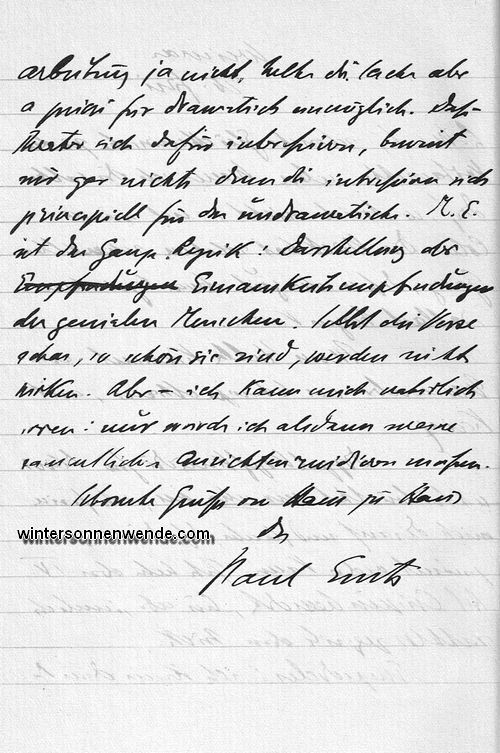 arbeitung ja nicht, halte die Sache aber
a priori für dramatisch unmöglich. Daß
Theater sich dafür interessieren, beweist
mir gar nichts denn die interessieren sich
principiell für das undramatische. M. E.
ist das Ganze Lyrik: Darstellung der
Empfindungen Einsamkeitsempfindungen
des genialen Menschen. Selbst die Verse
, so schön sie sind, werden nicht
wirken. Aber – ich kann mich natürlich
irren: nur würde ich alsdann meine
sämmtlichen Ansichten revidieren müssen.
Schönste Grüße von Haus zu Haus
wintersonnenwende.com
Ihr
Paul Ernst